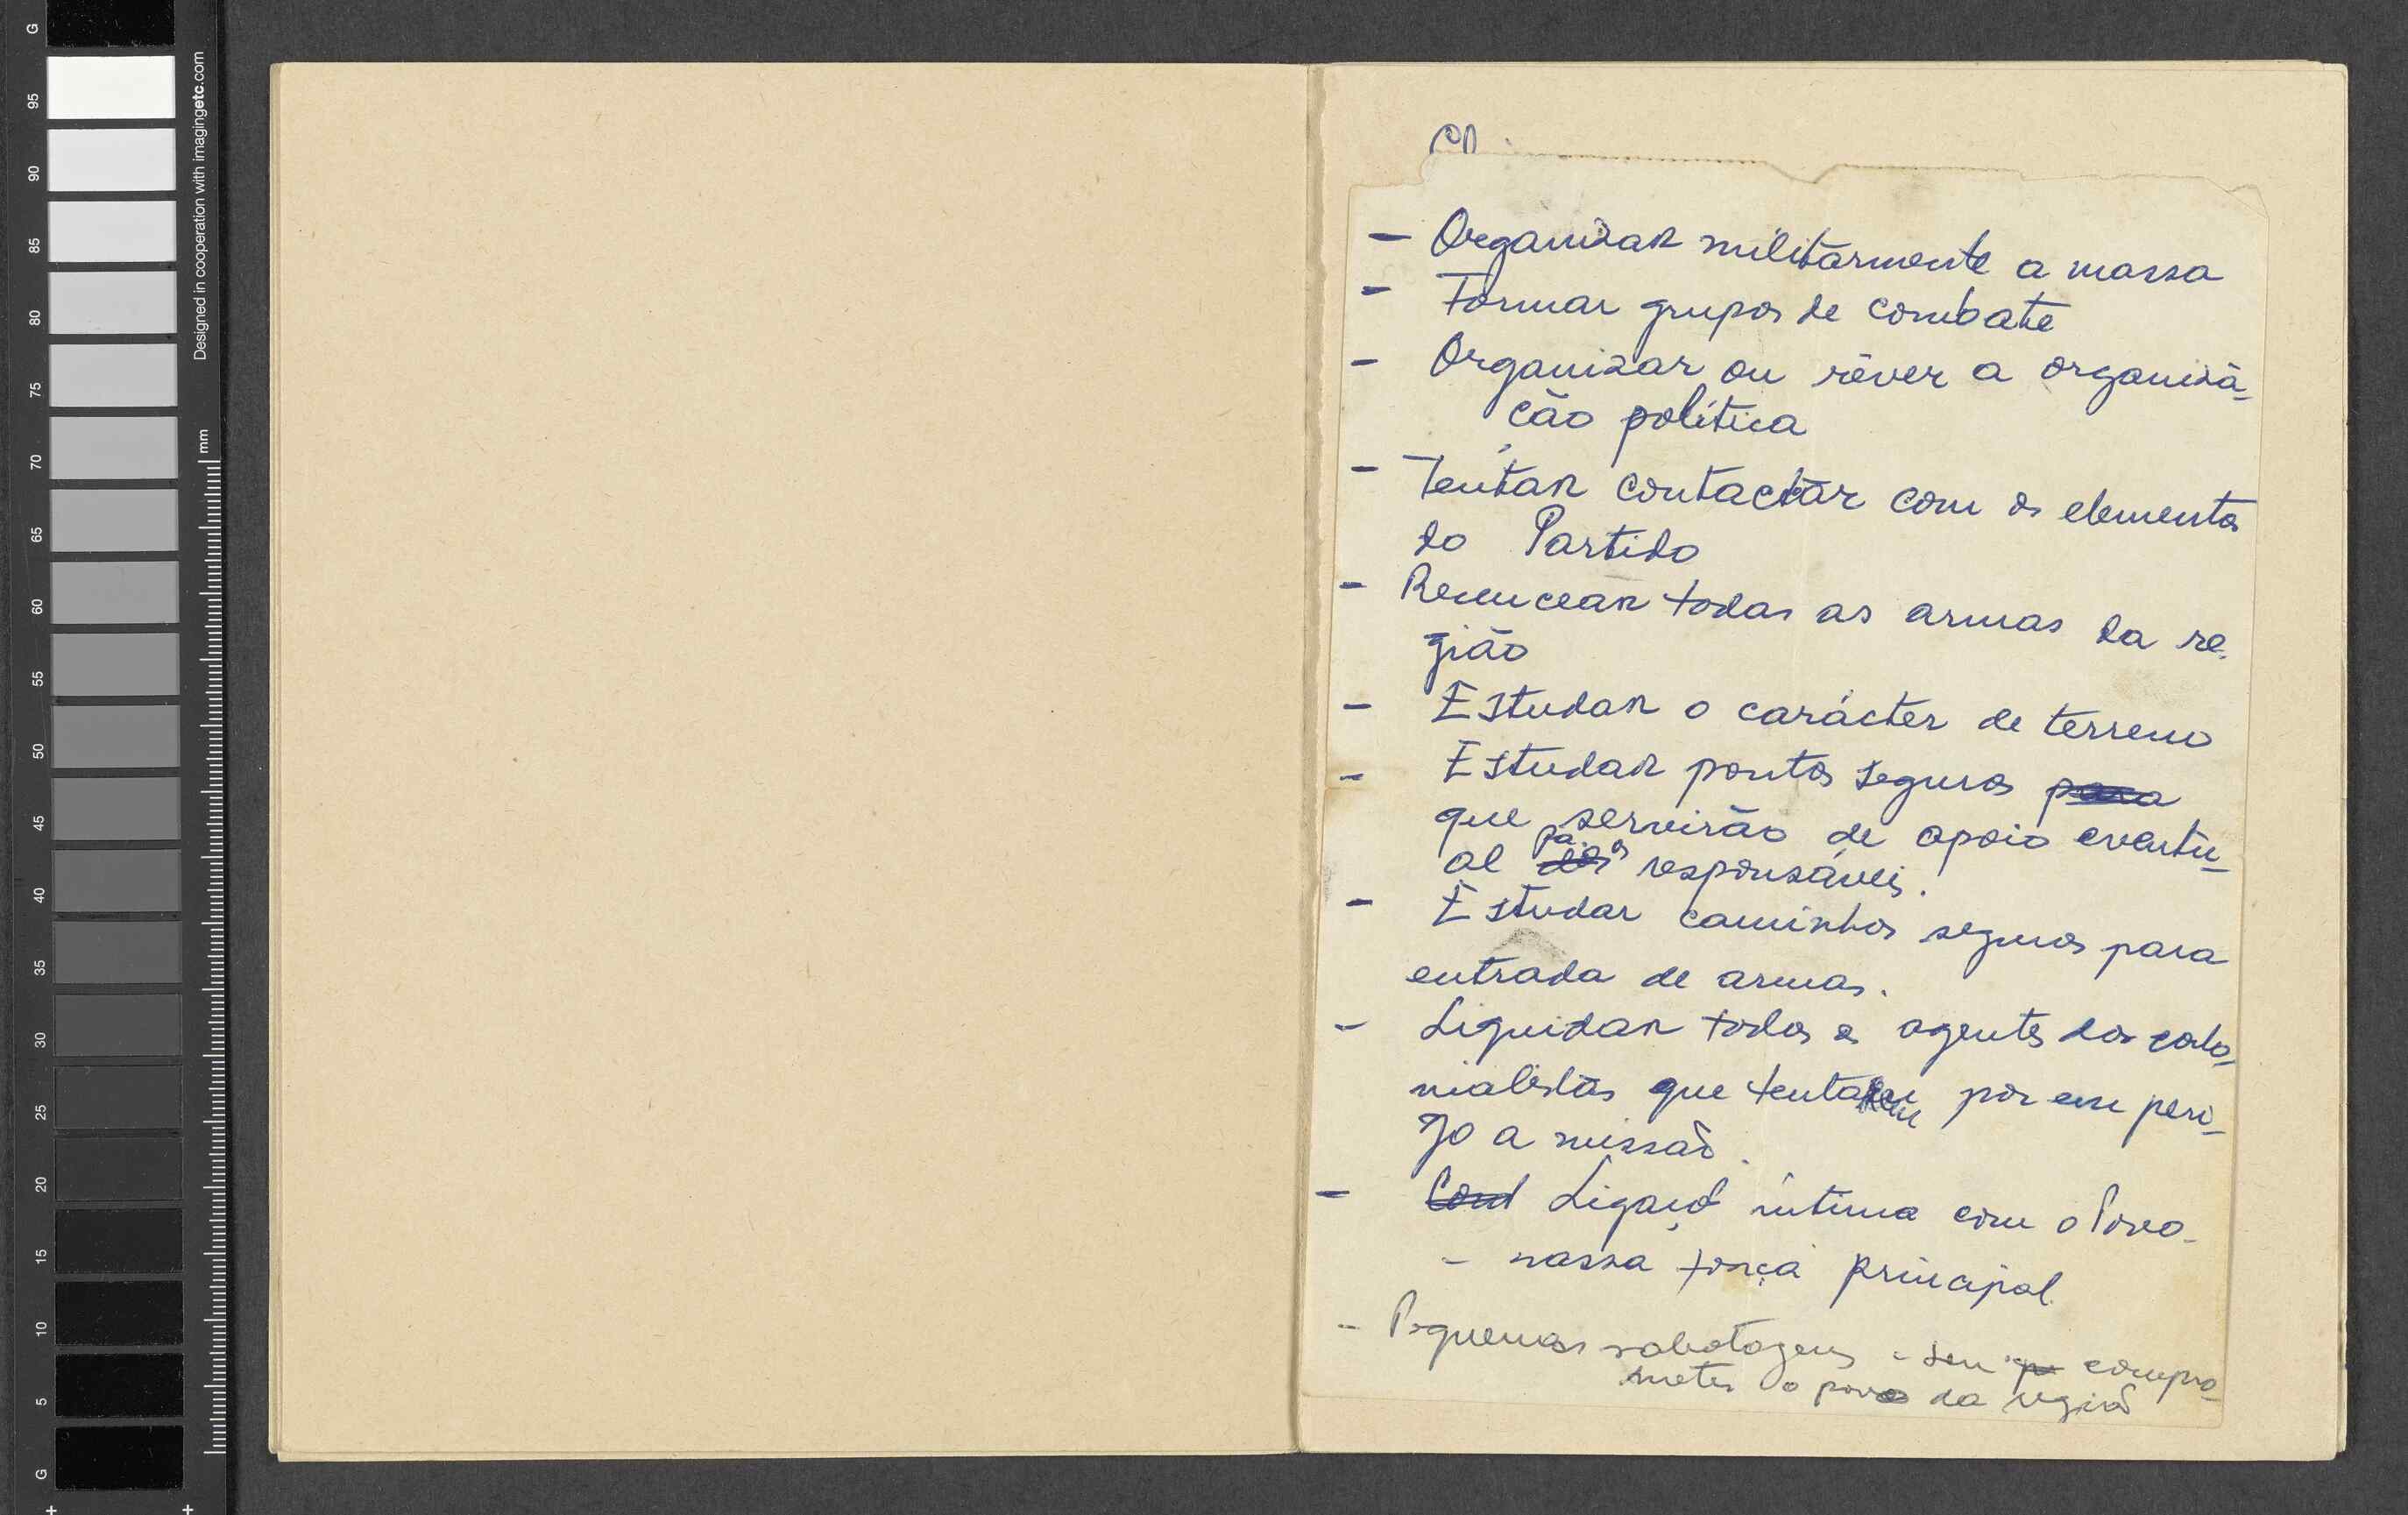 G
95
90
85
80
75
70
65
60
55
50
45
40
35
30
25
20
15
10
5
G
Designed in cooperation with imagingetc.com
mm
— Organizar militarmente a massa
— Formar grupos de combate
— Organizar ou rever a organiza-
ção política
— Tentar contactar com os elementos
do Partido
— todas as armas da re-
gião
— Estudar o carácter de terreno
— Estudar pontos seguros para
que servirão de apoio eventu-
al dos pa. os responsáveis.
— Estudar caminhos seguros para
entrada de armas.
— Liquidar todos os agentes dos colo-
nialistas que tentarem pôr em peri-
go a missão.
— Cond Ligação íntima com o Povo -
- nossa força principal.
- Pequenas sabotagens - sem compro-
meter o povo da região